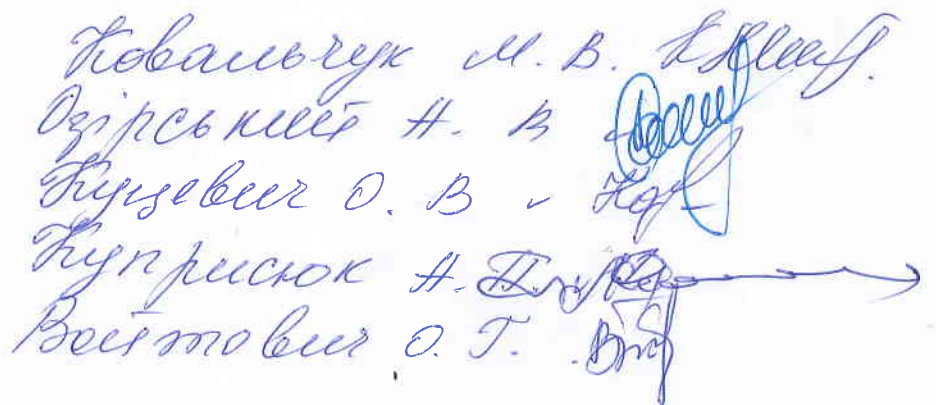 Ковальчук М. В.
Озірський А. В
Куцевич О. В
Куприсюк А.
Войтович О. Г.